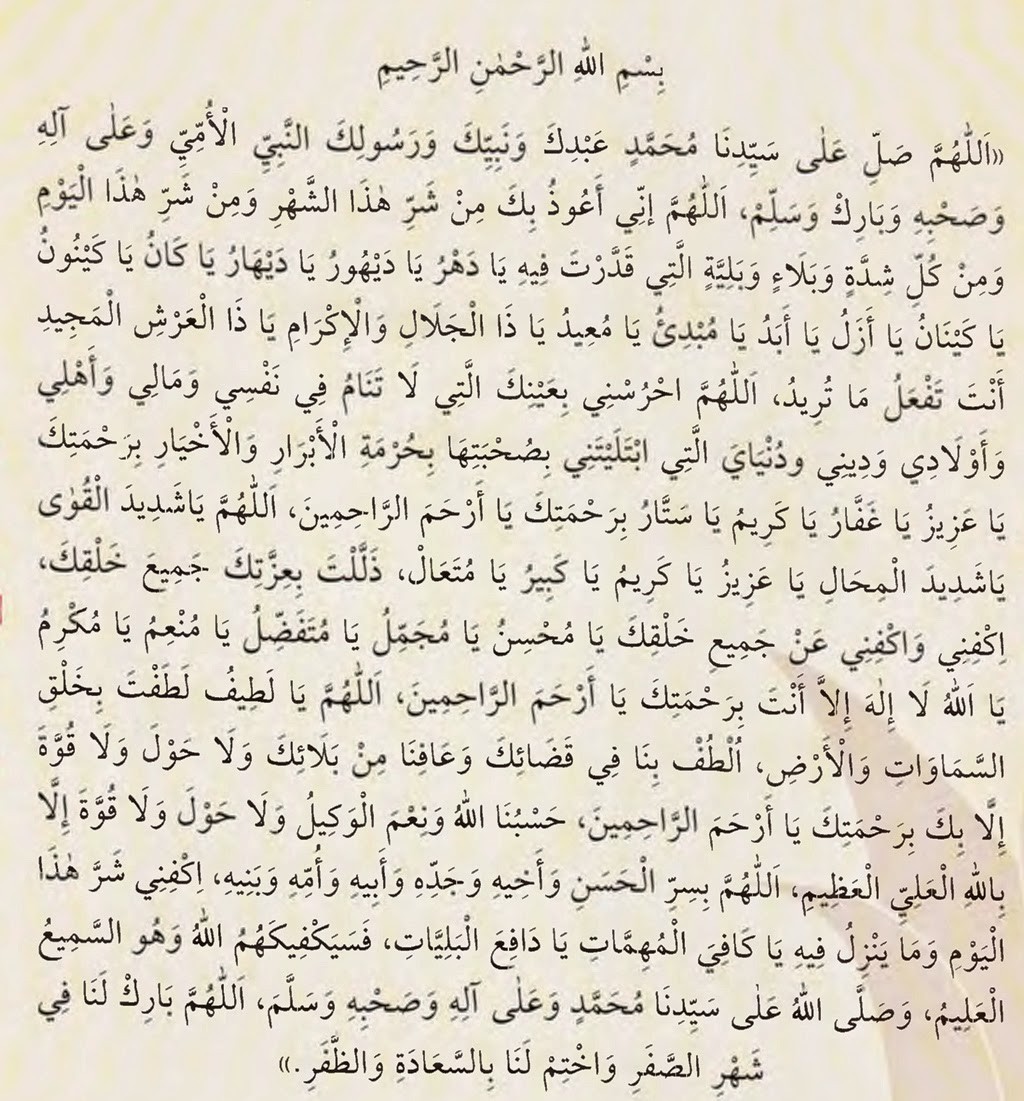 بِسْمِ اللهِ الرَّحْمٰنِ الرَّحِيمِ
«اَللّٰهُمَّ صَلِّ عَلٰى سَيِّدِنَا مُحَمَّدٍ عَبْدِكَ وَنَبِيِّكَ وَرَسُولِكَ النَّبِيِّ الْأُمِّيِّ وَعَلٰى آلِهِ
وَصَحْبِهِ وَبَارِكْ وَسَلِّمْ، اَللّٰهُمَّ إنِّي أَعُوذُ بِكَ مِنْ شَرِّ هٰذَا الشَّهْرِ وَمِنْ شَرِّ هٰذَا الْيَوْمِ
وَمِنْ كُلِّ شِدَّةٍ وَبَلَاءٍ وَبَلِيَّةٍ الَّتِي قَدَّرْتَ فِيهِ يَا دَهْرُ يَا دَيْهُورُ يَا دَيْهَارُ يَا كَانُ يَا كَيْنُونُ
يَا كَيْنَانُ يَا أَزَلُ يَا أَبَدُ يَا مُبْدِئُ يَا مُعِيدُ يَا ذَا الْجَلَالِ وَالْإِكْرَامِ يَا ذَا الْعَرْشِ الْمَجِيدِ
أَنْتَ تَفْعَلُ مَا تُرِيدُ، اَللّٰهُمَّ احْرُسْنِي بِعَيْنِكَ الَّتِي لَا تَنَامُ فِي نَفْسِي وَمَالِي وَأَهْلِي
وَأَوْلَادِي وَدِينِي ودُنْيَايَ الَّتِي ابْتَلَيْتَنِي بِصُحْبَتِهَا بِحُرْمَةِ الْأَبْرَارِ وَالْأَخْيَارِ بِرَحْمَتِكَ
يَا عَزِيزُ يَا غَفَّارُ يَا كَرِيمُ يَا سَتَّارُ بِرَحْمَتِكَ يَا أَرْحَمَ الرَّاحِمِينَ، اَللّٰهُمَّ يَاشَدِيدَ الْقُوٰى
يَاشَدِيدَ الْمِحَالِ يَا عَزِيزُ يَا كَرِيمُ يَا كَبِيرُ يَا مُتَعَالْ، ذَلَّلْتَ بِعِزَّتِكَ جَمِيعَ خَلْقِكَ،
اِكْفِنِي وَاكْفِنِي عَنْ جَمِيعِ خَلْقِكَ يَا مُحْسِنُ يَا مُجَمِّلُ يَا مُتَفَضِّلُ يَا مُنْعِمُ يَا مُكْرِمُ
يَا اَللهُ لَا إِلٰهَ إِلاَّ أَنْتَ بِرَحْمَتِكَ يَا أَرْحَمَ الرَّاحِمِينَ، اَللّٰهُمَّ يَا لَطِيفُ لَطَفْتَ بِخَلْقِ
السَّمَاوَاتِ وَالْأَرْضِ، اُلْطُفْ بِنَا فِي قَضَائِكَ وَعَافِنَا مِنْ بَلَائِكَ وَلَا حَوْلَ وَلَا قُوَّةَ
إِلَّا بِكَ بِرَحْمَتِكَ يَا أَرْحَمَ الرَّاحِمِينَ، حَسْبُنَا اللهُ وَنِعْمَ الْوَكِيلُ وَلَا حَوْلَ وَلَا قُوَّةَ إِلَّا
بِاللهِ الْعَلِيِّ الْعَظِيمِ، اَللّٰهُمَّ بِسِرِّ الْحَسَنِ وَأَخِيهِ وَجَدِّهِ وَأَبِيهِ وَأُمِّهِ وَبَنِيهِ، اِكْفِنِي شَرَّ هٰذَا
الْيَوْمِ وَمَا يَنْزِلُ فِيهِ يَا كَافِيَ الْمُهِمَّاتِ يَا دَافِعَ الْبَلِيَّاتِ، فَسَيَكْفِيكَهُمُ اللهُ وَهُو السَّمِيعُ
الْعَلِيمُ، وَصَلَّى اللهُ عَلٰى سَيِّدِنَا مُحَمَّدٍ وَعَلٰى آلِهِ وَصَحْبِهِ وَسَلَّمَ، اَللّٰهُمَّ بَارِكْ لَنَا فِي
شَهْرِ الصَّفَرِ وَاخْتِمْ لَنَا بِالسَّعَادَةِ وَالظَّفَرِ.»